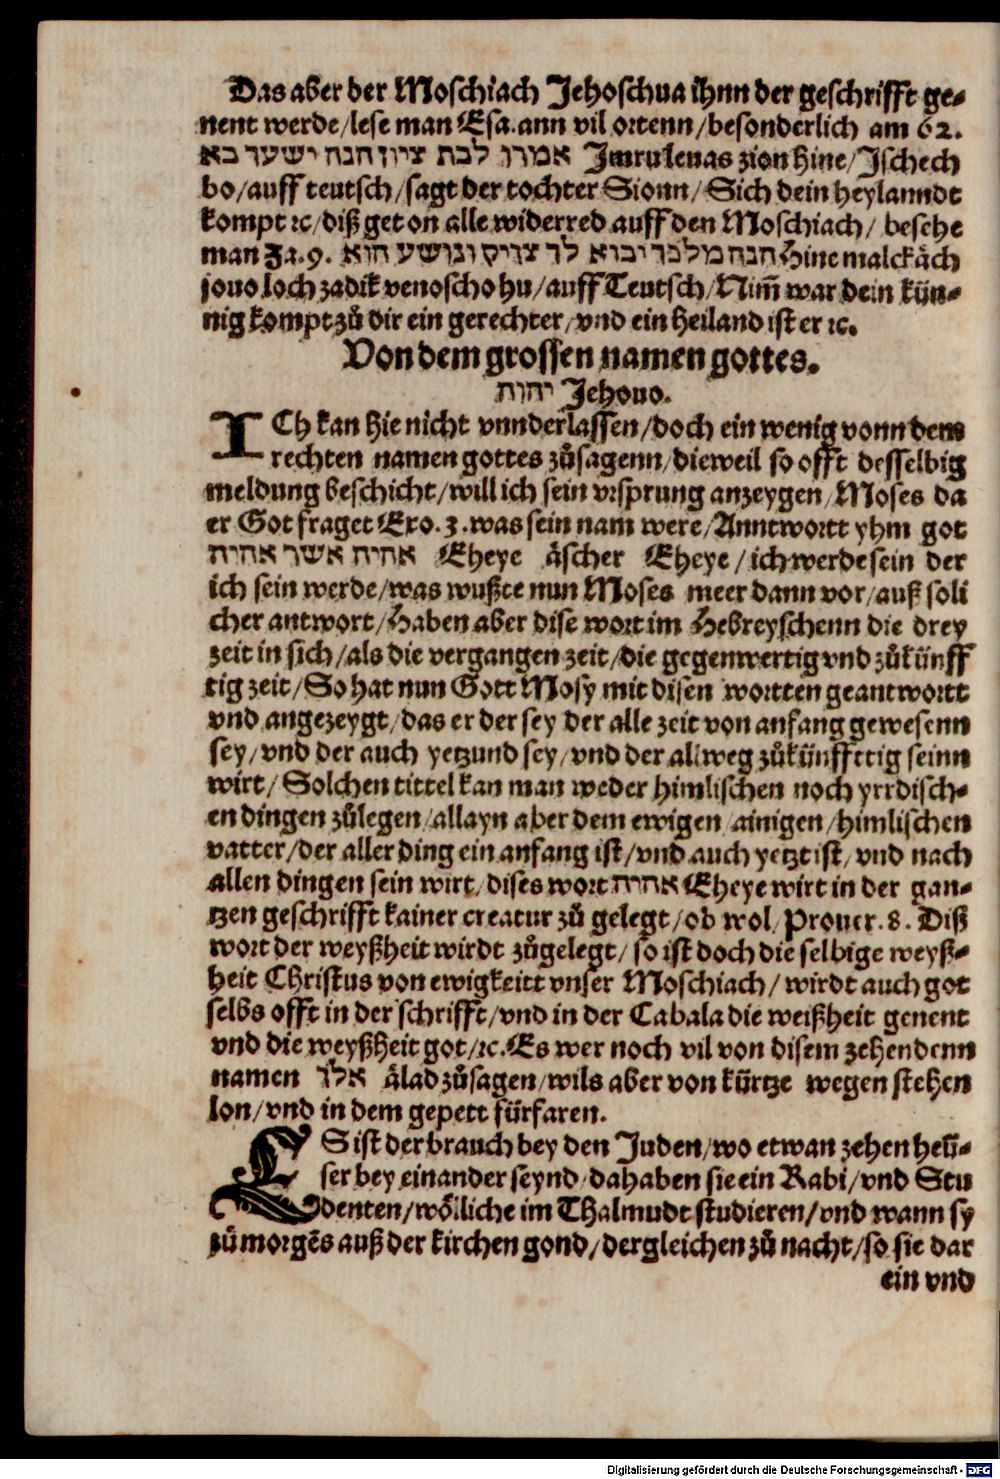 Das aber der Moschiach Jehoschua ihnn der geschrifft ge-
nent werde/lese man Esa.ann vil ortenn/besonderlich am 62.
אמרו לבת ציון הנה ישער בא Jmrulevas zion hine/Jschech
bo/auff teutsch/sagt der tochter Sionn/Sich dein heylanndt
kompt ⁊c/diß get on alle widerred auff den Moschiach/ besehe
man Za.9. הנה מלכך יבוא לך צדיק ונושע הוא Hine malckåch
jouo loch zadik venoscho hu/auff Teutsch/Nim̃ war dein kün-
nig kompt zů dir ein gerechter/vnd ein heiland ist er ⁊c.
Von dem grossen namen gottes.
יהוה Jehouo.
ICh kan hie nicht vnnderlassen/doch ein wenig vonn dem
rechten namen gottes zůsagenn/dieweil so offt desselbig
meldung beschicht/will ich sein vrsprung anzeygen/Moses da
er Got fraget Exo.3.was sein nam were/Anntwortt yhm got
אהיה אשר אהיה Eheye åscher Eheye/ich werde sein der
ich sein werde/was wußte nun Moses meer dann vor/auß soli
cher antwort/Haben aber dise wort im Hebreyschenn die drey
zeit in sich/als die vergangen zeit/die gegenwertig vnd zůkünff
tig zeit/So hat nun Gott Mosy mit disen wortten geantwortt
vnd angezeygt/das er der sey der alle zeit von anfang gewesenn
sey/vnd der auch yetzund sey/vnd der allweg zůkünfftig seinn
wirt/Solchen tittel kan man weder himlischen noch yrrdisch-
en dingen zůlegen/allayn aber dem ewigen/ainigen/himlischen
vatter/der aller ding ein anfang ist/vnd auch yetzt ist/vnd nach
allen dingen sein wirt/dises wort אהיה Eheye wirt in der gan-
tzen geschrifft kainer creatur zů gelegt/ob wol/Prouer.8. Diß
wort der weyßheit wirdt zůgelegt/so ist doch die selbige weyß-
heit Christus von ewigkeitt vnser Moschiach/wirdt auch got
selbs offt in der schrifft/vnd in der Cabala die weißheit genent
vnd die weyßheit got/⁊c.Es wer noch vil von disem zehendenn
namen אלד ålad zůsagen/wils aber von kürtze wegen stehen
lon/vnd in dem gepett fürfaren.
ES ist der brauch bey den Juden/wo etwan zehen heü-
ser bey einander seynd/da haben sie ein Rabi/vnd Stu
denten/wölliche im Thalmudt studieren/vnd wann sy
zů morgẽs auß der kirchen gond/dergleichen zů nacht/so sie dar
ein vnd
Digitalisierung gefördert durch die Deutsche Forschungsgemeinschaft - DFG